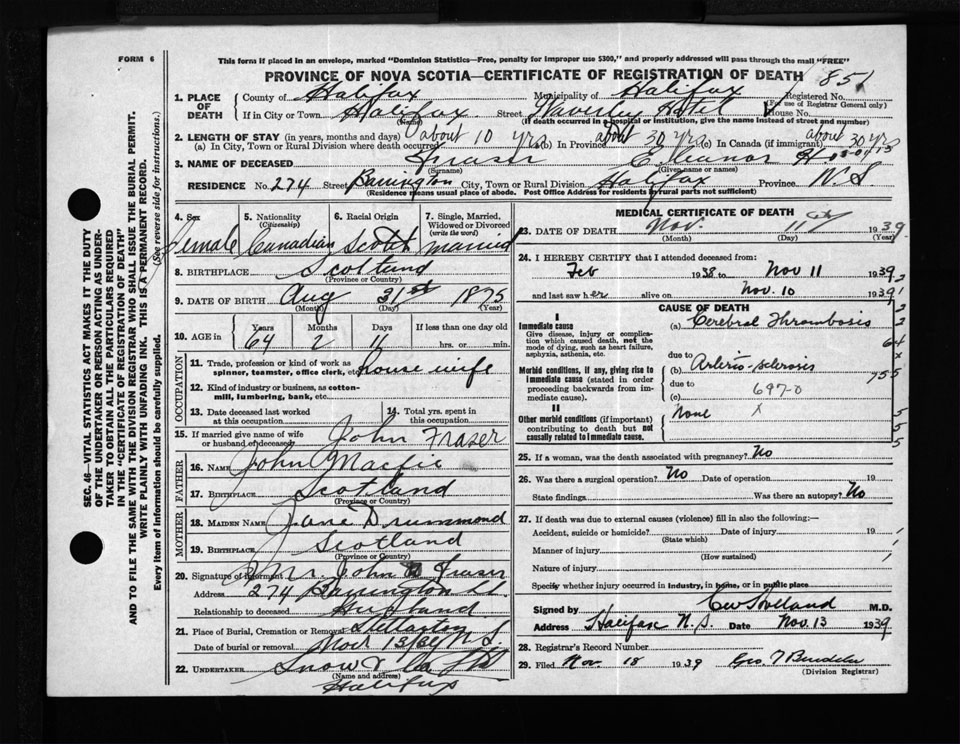 FORM 6
This form if placed in an envelope, marked "Dominion Statistics—Free, penalty for improper use $300," and properly addressed will pass through the mail "FREE"
PROVINCE OF NOVA SCOTIA—CERTIFICATE OF REGISTRATION OF DEATH 851
1. PLACE OF DEATH County of Halifax Municipality of Halifax Registered No.
(For use of Registrar General only)
If in City or Town Halifax Street Waverley Hotel House No.
(Name) (If death occurred in a hospital or institution, give the name instead of street and number)
2. LENGTH OF STAY (in years, months and days) about 10 yrs about 30 yrs about 30 yrs
(a) In City, Town or Rural Division where death occurred (b) In Province (c) In Canada (if immigrant)
3. NAME OF DECEASED Fraser Eleanor H
(Surname) (Given name or names)
RESIDENCE No. 274 Street Barrington City, Town or Rural Division Halifax Province N.S.
(Residence means usual place of abode. Post Office Address for residents in rural parts not sufficient)
4. Sex Female
5. Nationality (Citizenship) Canadian
6. Racial Origin Scotch
7. Single, Married, Widowed or Divorced (write the word) Married
8. BIRTHPLACE Scotland
(Province or Country)
9. DATE OF BIRTH Aug 31st 1875
(Month) (Day) (Year)
10. AGE in Years 64 Months 2 Days 11 If less than one day old
hrs. or min.
OCCUPATION
11. Trade, profession or kind of work as spinner, teamster, office clerk, etc. house wife
12. Kind of industry or business, as cotton-mill, lumbering, bank, etc.
13. Date deceased last worked at this occupation
14. Total yrs. spent in this occupation
15. If married give name of wife or husband of deceased John Fraser
FATHER
16. NAME John Macfie
17. BIRTHPLACE Scotland
(Province or Country)
MOTHER
18. MAIDEN NAME Jane Drummond
19. BIRTHPLACE Scotland
(Province or Country)
20. Signature of Informant Mr John Fraser
Address 274 Barrington St.
Relationship to deceased Husband
21. Place of Burial, Cremation or Removal Stellarton N.S.
Date of burial or removal Nov 13/39
22. UNDERTAKER Snow & Co Ltd
(Name and address)
Halifax
MEDICAL CERTIFICATE OF DEATH
23. DATE OF DEATH Nov. 11th 1939
(Month) (Day) (Year)
24. I HEREBY CERTIFY that I attended deceased from:
Feb 1938 to Nov 11 1939
and last saw her alive on Nov. 10 1939
CAUSE OF DEATH
I
Immediate cause
Give disease, injury or complication which caused death, not the mode of dying, such as heart failure, asphyxia, asthenia, etc.
(a) Cerebral Thrombosis
due to
Morbid conditions, if any, giving rise to immediate cause (stated in order proceeding backwards from immediate cause).
(b) Arterio-sclerosis
due to
(c) 697-0
II
Other morbid conditions (if important) contributing to death but not causally related to immediate cause.
None x
25. If a woman, was the death associated with pregnancy? No
26. Was there a surgical operation? No Date of operation 19
State findings Was there an autopsy? No
27. If death was due to external causes (violence) fill in also the following:—
Accident, suicide or homicide? Date of injury 19
(State which)
Manner of injury
(How sustained)
Nature of injury
Specify whether injury occurred in industry, in home, or in public place
Signed by M.D.
Address Halifax N.S. Date Nov. 13 1939
28. Registrar's Record Number
29. Filed Nov 18 1939 Geo
(Division Registrar)
SEC. 46—VITAL STATISTICS ACT MAKES IT THE DUTY
OF THE UNDERTAKER OR PERSON ACTING AS UNDER-
TAKER TO OBTAIN ALL THE PARTICULARS REQUIRED
IN THE "CERTIFICATE OF REGISTRATION OF DEATH"
AND TO FILE THE SAME WITH THE DIVISION REGISTRAR WHO SHALL ISSUE THE BURIAL PERMIT.
WRITE PLAINLY WITH UNFADING INK. THIS IS A PERMANENT RECORD.
Every item of information should be carefully supplied. (See reverse side for instructions.)